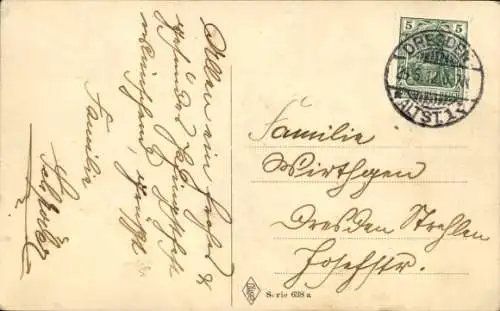 Allen ein frohes &
gesundes Pfingstfest
wünschend, grüßt
Familie
5 5
DRESDEN
ALTST.
Familie
Wirthgen
Dresden Strehlen
Josefstr.
Serie 698 a